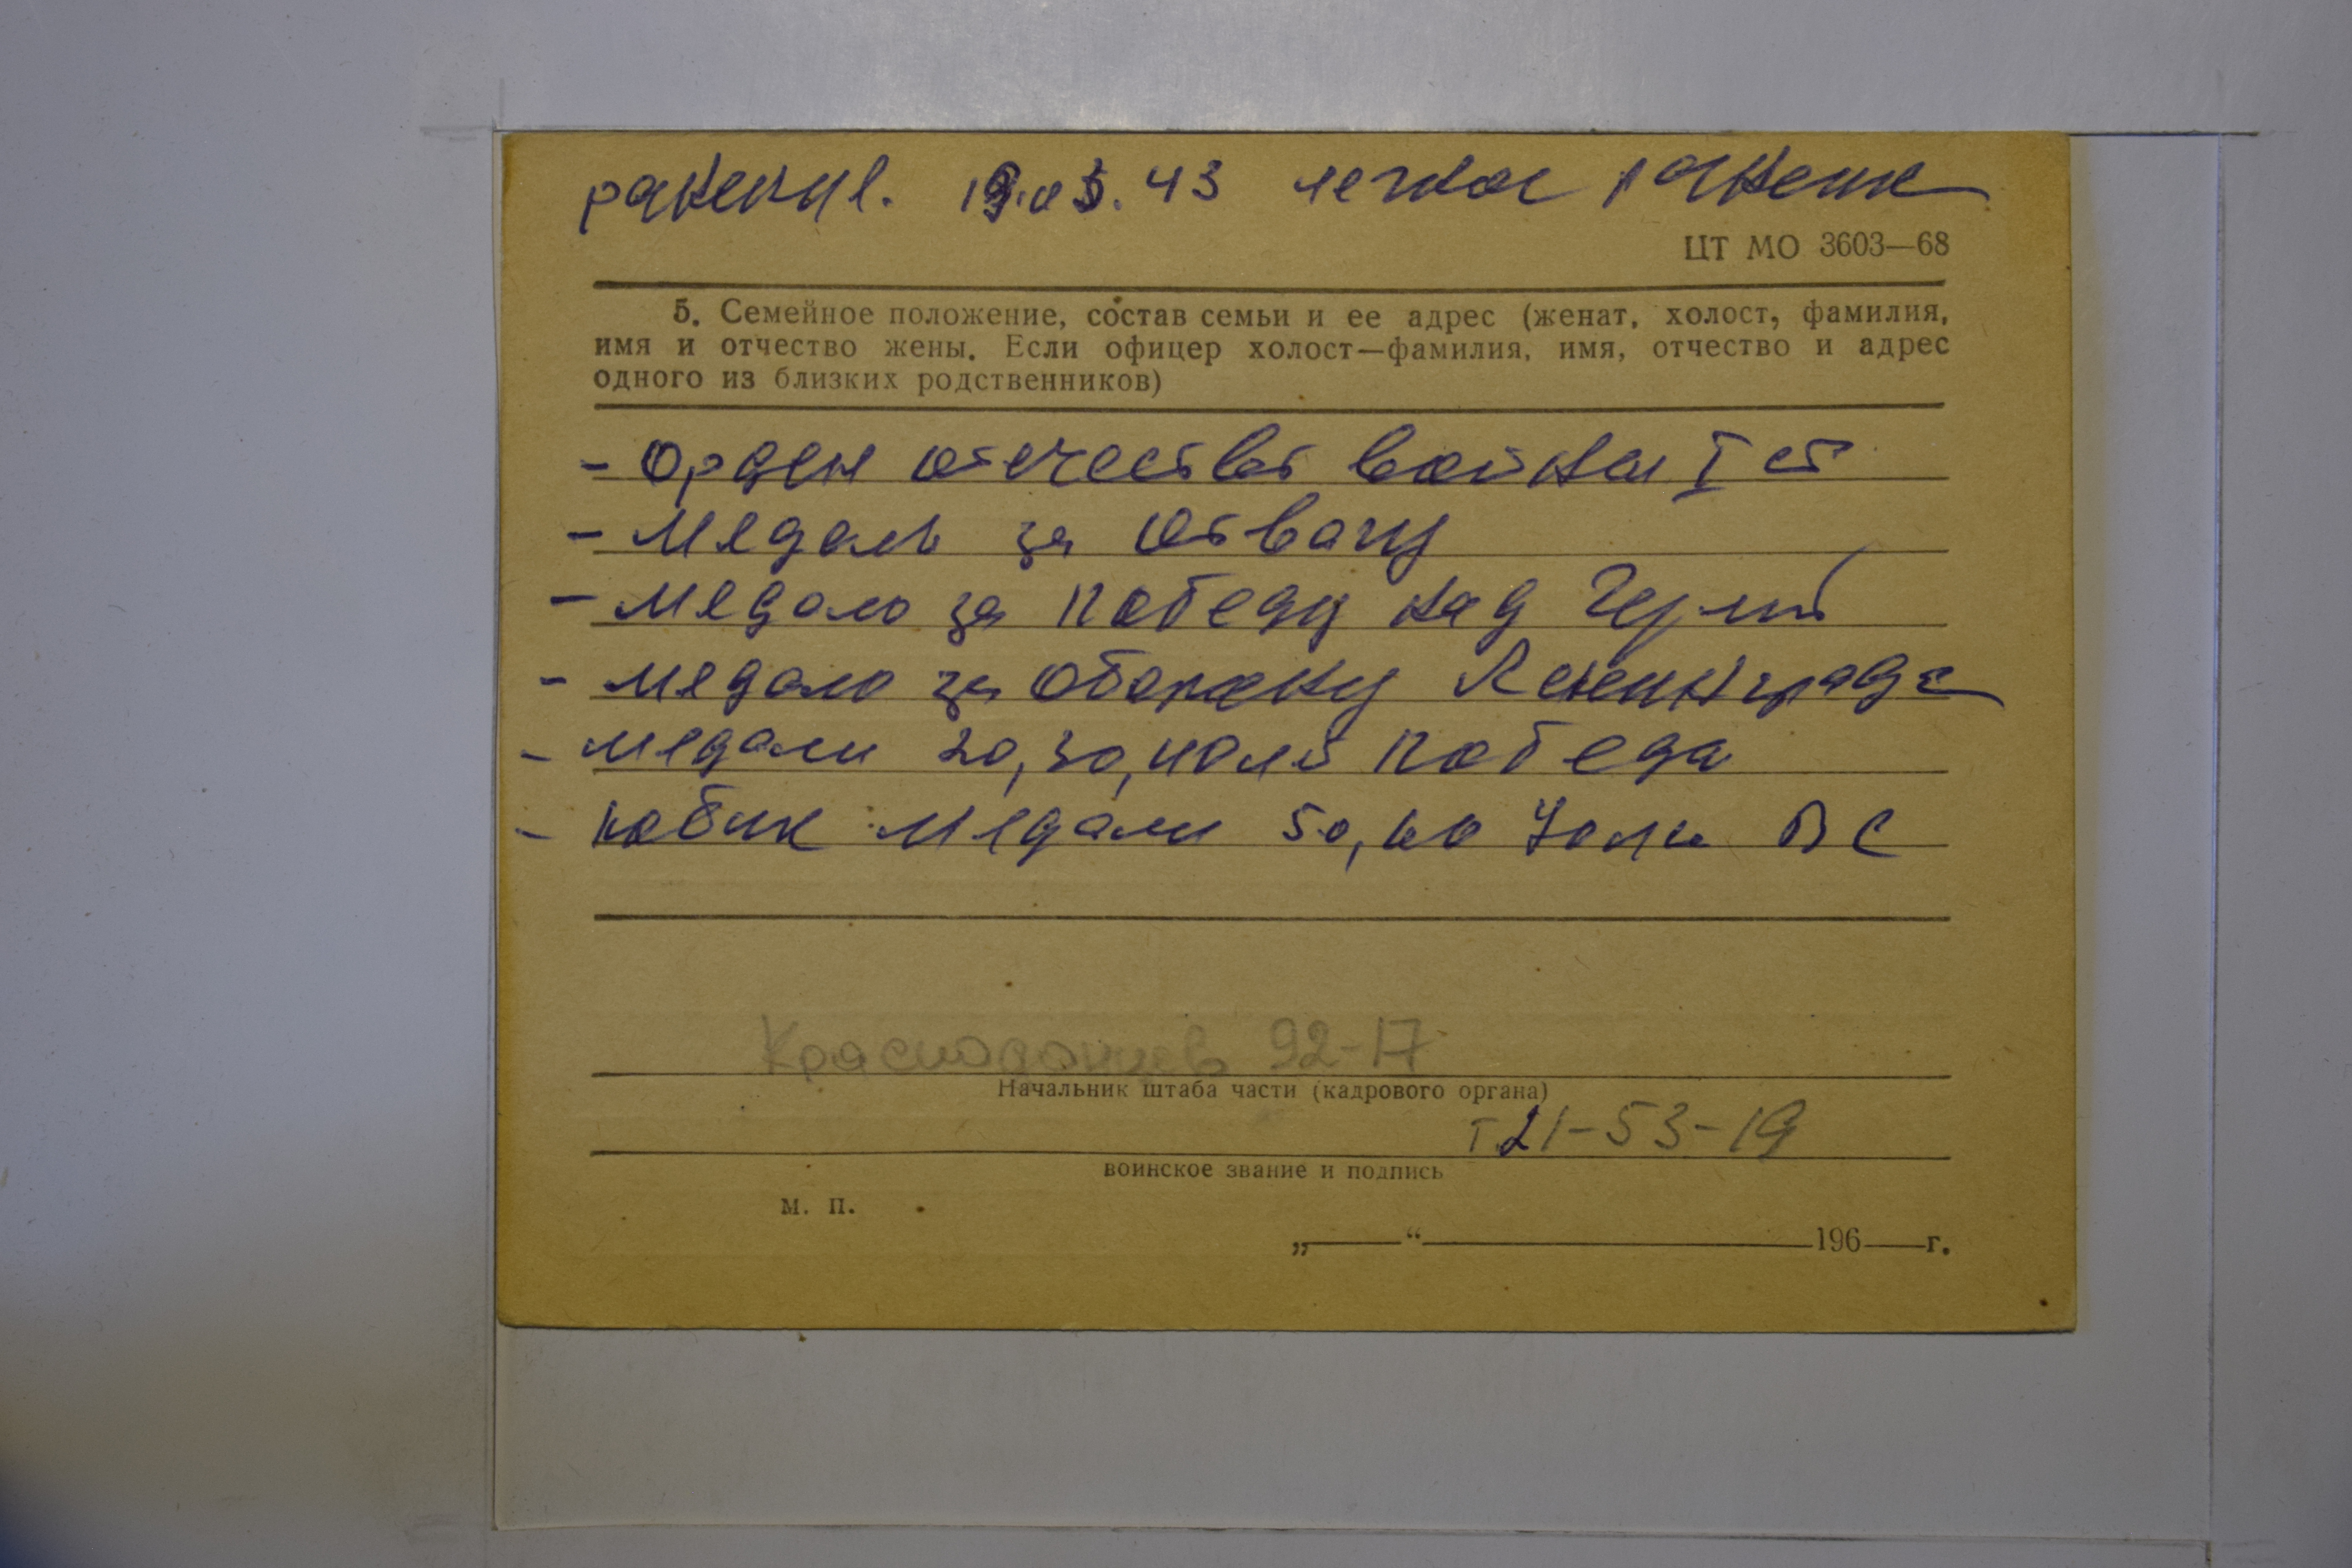 ранения. 19.03.43 легкое ранение
ЦТ МО 3603—68
5. Семейное положение, состав семьи и ее адрес (женат, холост, фамилия,
имя и отчество жены. Если офицер холост—фамилия, имя, отчество и адрес
одного из близких родственников)
- Орден отечеств войны I ст
- Медаль за отвагу
- медаль за победу над Герм
- медаль за оборону Ленинграда
- медали 20, 30, 40 лет победа
- юбил медали 50, 60 70 лет ВС
Краснодонцев 92-17
Начальник штаба части (кадрового органа)
т. 21-53-19
воинское звание и подпись
М. П.
„ “ 196 г.